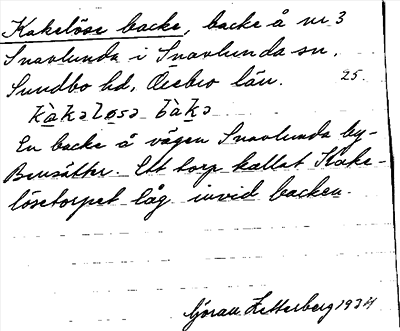 Kakelöse backe, backe å nr 3
Snavlunda i Snavlunda sn,
Sundbo hd, Örebro län. 25.
kàkəlosə bàkə
En backe å vägen Snavlunda by-
Bensätter. Ett torp kallat Kake-
lösetorpet låg invid backen.
Göran Zetterberg 1934